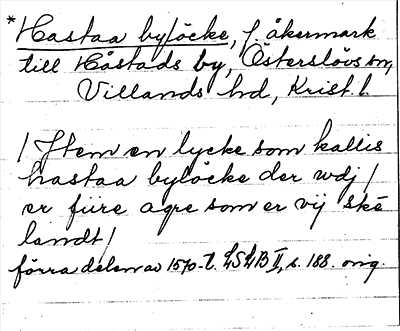 * Hastaa bylöcke, f. åkermark
till Håstads by, Österslövs sn,
Villands hd, Krist. l.
/ Item en lycke som kallis
hastaa bylöcke der wdj /
er fiire agre som er vij ske
landt /
förra delen av 1570-t. LSLB II, s. 188. orig.